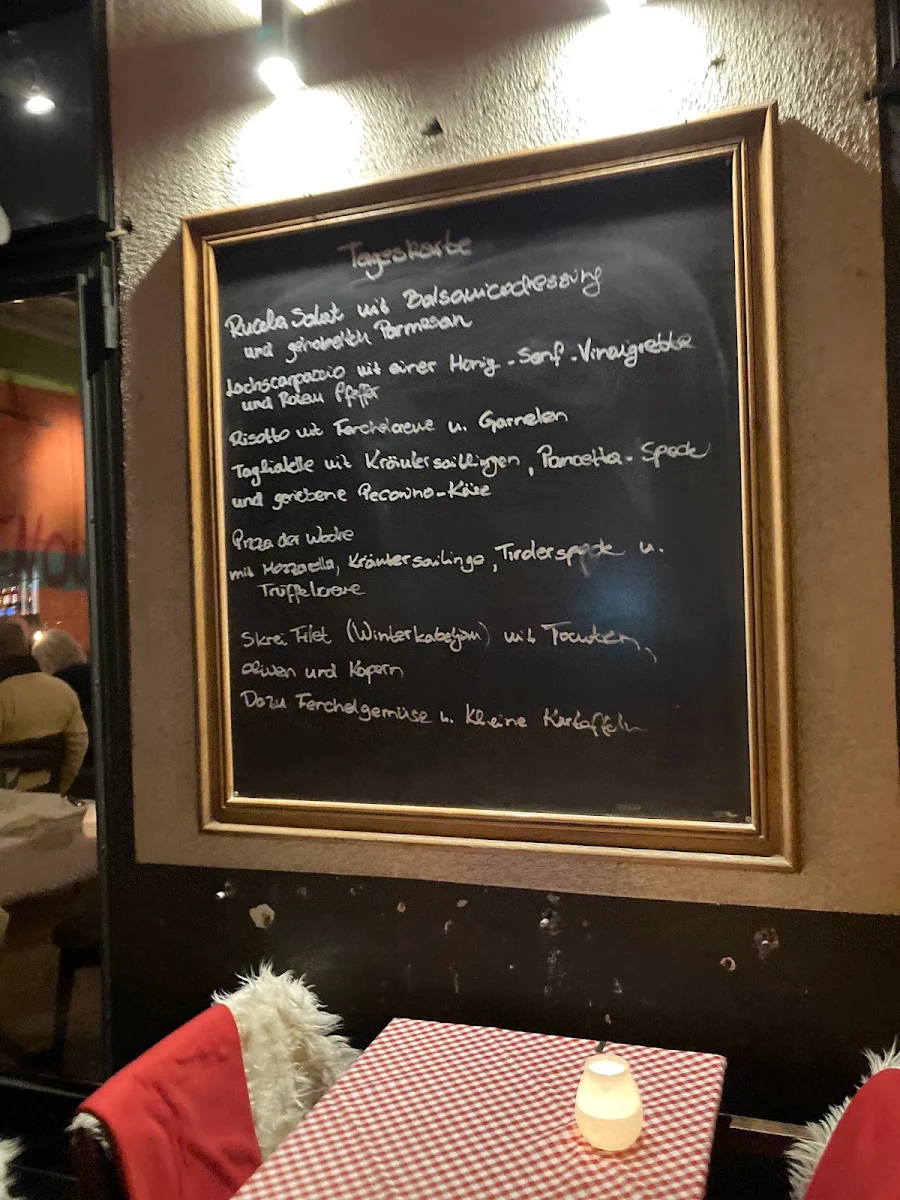 Tageskarte
Rucola Salat mit Balsamicodressing
und gehobelten Parmesan
Lachscarpaccio mit einer Honig-Senf-Vinaigrette
und Rotem Pfeffer
Risotto mit Fenchelcreme u. Garnelen
Tagliatelle mit Kräutersaiblingen, Pancetta-Speck
und geriebene Pecorino-Käse
Pizza der Woche
mit Mozzarella, Kräutersailinge, Tirolerspeck u.
Trüffelcreme
Skrei Filet (Winterkabeljau) mit Tomaten,
oliven und Kapern
Dazu Fenchelgemüse u. Kleine Kartoffeln